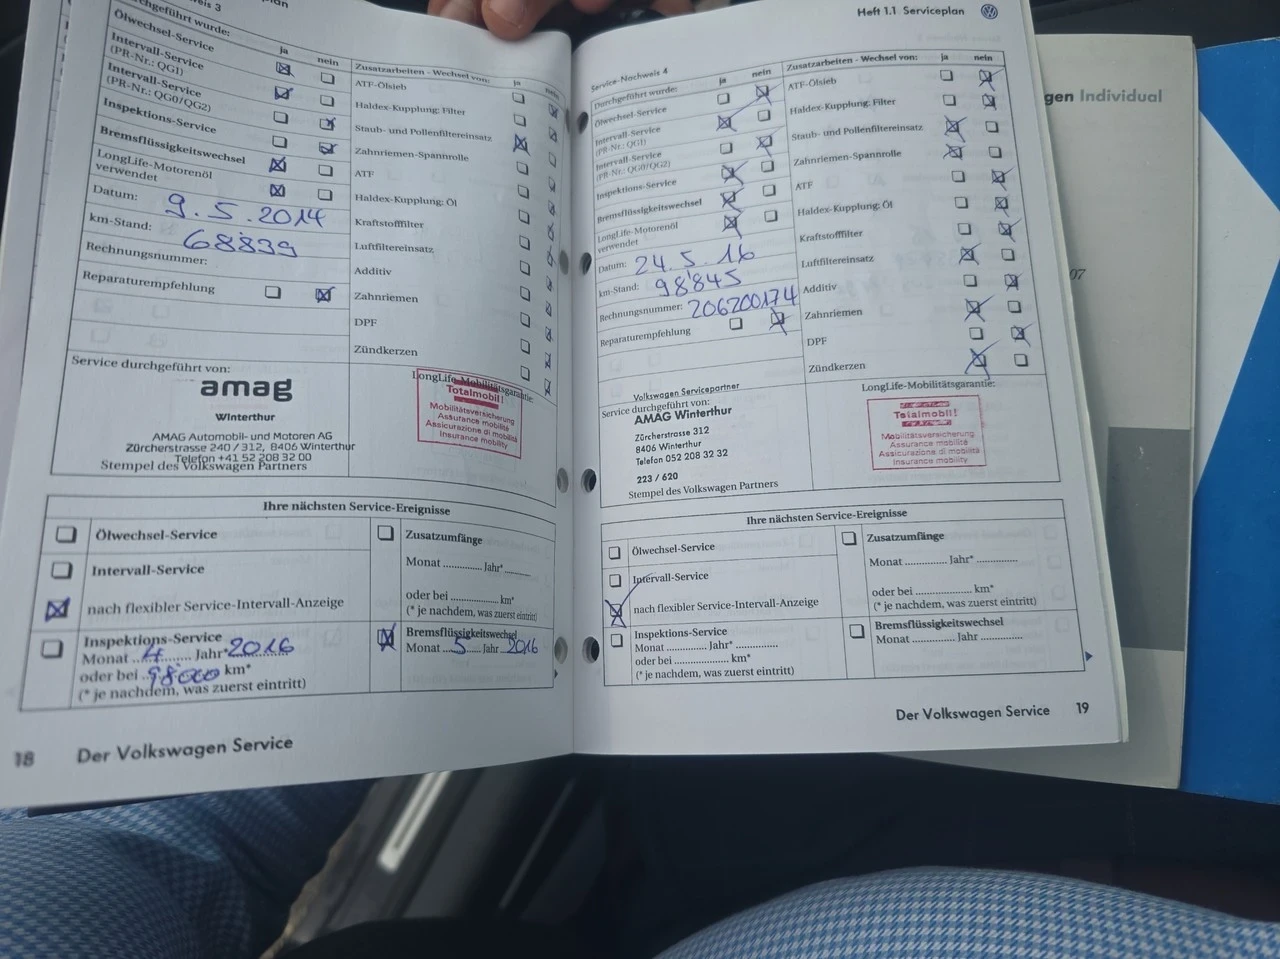 Ölwechsel-Service
ja nein
Intervall-Service
(PR-Nr.: QG1)
Intervall-Service
(PR-Nr.: QG0/QG2)
Inspektions-Service
Bremsflüssigkeitswechsel
LongLife-Motorenöl
verwendet
Datum: 9.5.2014
km-Stand: 68839
Rechnungsnummer:
Reparaturempfehlung
Zusatzarbeiten - Wechsel von: ja nein
ATF-Ölsieb
Haldex-Kupplung: Filter
Staub- und Pollenfiltereinsatz
Zahnriemen-Spannrolle
ATF
Haldex-Kupplung: Öl
Kraftstofffilter
Luftfiltereinsatz
Additiv
Zahnriemen
DPF
Zündkerzen
Service durchgeführt von:
amag
Winterthur
AMAG Automobil- und Motoren AG
Zürcherstrasse 240 / 312, 8406 Winterthur
Telefon +41 52 208 32 00
Stempel des Volkswagen Partners
LongLife-Mobilitätsgarantie:
Totalmobil!
Mobilitätsversicherung
Assurance mobilité
Assicurazione di mobilità
Insurance mobility
Ihre nächsten Service-Ereignisse
Ölwechsel-Service
Intervall-Service
nach flexibler Service-Intervall-Anzeige
Inspektions-Service
Monat ..4.. Jahr* 2016
oder bei 98'000 km*
(* je nachdem, was zuerst eintritt)
Zusatzumfänge
Monat ............. Jahr*.............
oder bei ................... km*
(* je nachdem, was zuerst eintritt)
Bremsflüssigkeitswechsel
Monat 5 Jahr 2016
18 Der Volkswagen Service
Heft 1.1 Serviceplan
Service-Nachweis 4
Durchgeführt wurde: ja nein
Ölwechsel-Service
Intervall-Service
(PR-Nr.: QG1)
Intervall-Service
(PR-Nr.: QG0/QG2)
Inspektions-Service
Bremsflüssigkeitswechsel
LongLife-Motorenöl
verwendet
Datum: 24.5.16
km-Stand: 98'845
Rechnungsnummer: 206200174
Reparaturempfehlung
Zusatzarbeiten - Wechsel von: ja nein
ATF-Ölsieb
Haldex-Kupplung: Filter
Staub- und Pollenfiltereinsatz
Zahnriemen-Spannrolle
ATF
Haldex-Kupplung: Öl
Kraftstofffilter
Luftfiltereinsatz
Additiv
Zahnriemen
DPF
Zündkerzen
Volkswagen Servicepartner
Service durchgeführt von:
AMAG Winterthur
Zürcherstrasse 312
8406 Winterthur
Telefon 052 208 32 32
223 / 620
Stempel des Volkswagen Partners
LongLife-Mobilitätsgarantie:
Totalmobil!
Mobilitätsversicherung
Assurance mobilité
Assicurazione di mobilità
Insurance mobility
Ihre nächsten Service-Ereignisse
Ölwechsel-Service
Intervall-Service
nach flexibler Service-Intervall-Anzeige
Inspektions-Service
Monat ............. Jahr* .............
oder bei ................... km*
(* je nachdem, was zuerst eintritt)
Zusatzumfänge
Monat ............. Jahr* .............
oder bei ................... km*
(* je nachdem, was zuerst eintritt)
Bremsflüssigkeitswechsel
Monat ............. Jahr .............
Der Volkswagen Service 19
gen Individual
07